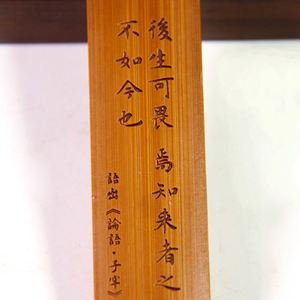 後生可畏 焉知来者之
不如今也
語出《論語·子罕》